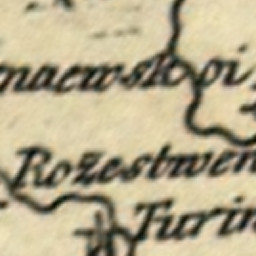 naewskoi
Rožestwen
Turin